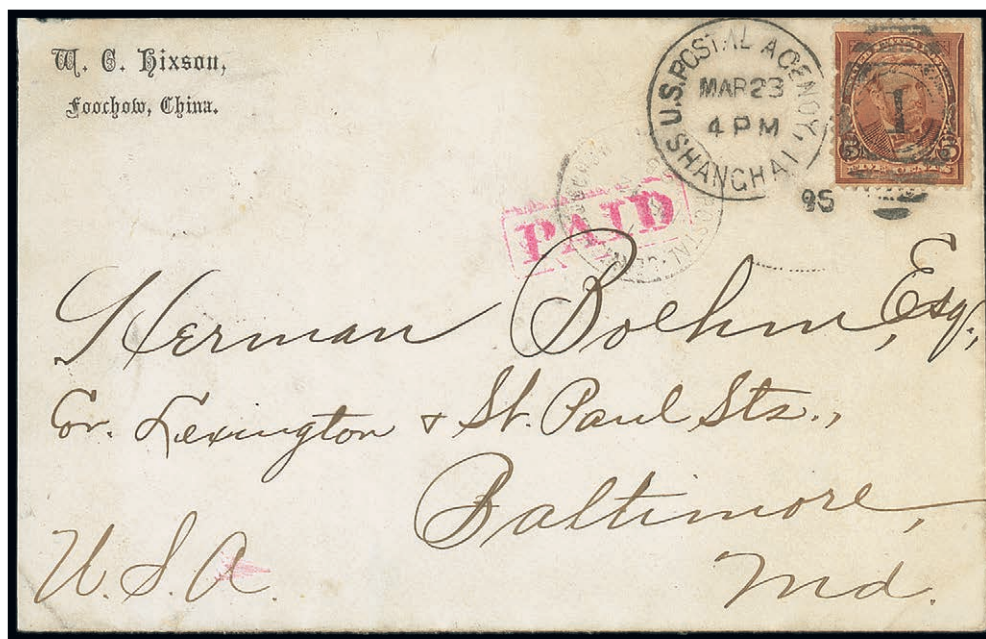 W. C. Hixson,
Foochow, China.
U.S. POSTAL AGENCY, SHANGHAI
MAR 23
4 PM
95
1
5 5
PAID
POSTAL
Herman Boehm, Esq.,
Cor. Lexington & St. Paul Sts.,
Baltimore,
Md.
U.S.A.